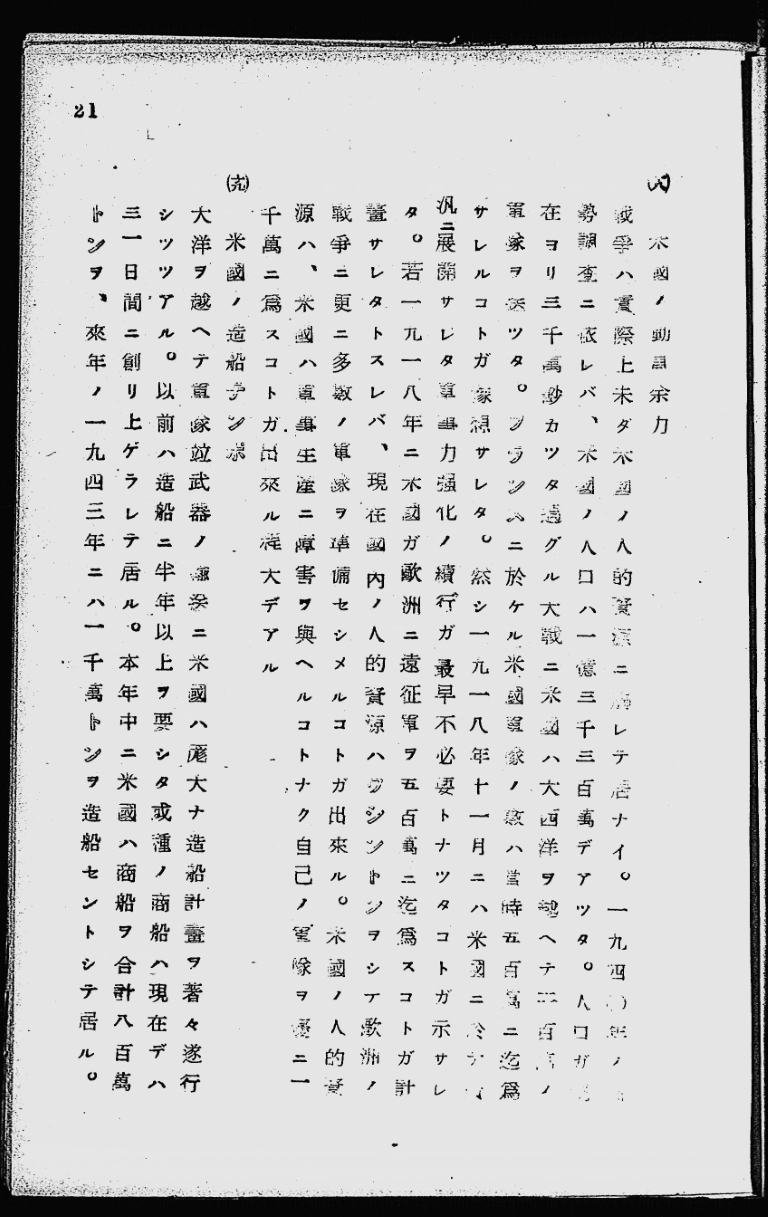 21
(八)
米國ノ動員余力
戰爭ハ實際上未ダ米國ノ人的資源ニ觸レテ居ナイ。一九四〇年ノ
勢調査ニ依レバ、米國ノ人口ハ一億三千三百萬デアツタ。人口ガ
在ヨリ三千萬尠カツタ過グル大戰ニ米國ハ大西洋ヲ越ヘテ二百萬ノ
軍隊ヲ送ツタ。フランスニ於ケル米國軍隊ノ數ハ當時五百萬ニ迄爲
サレルコトガ豫想サレタ。然シ一九一八年十一月ニハ米國ニ於テ
汎ニ展開サレタ軍事力强化ノ續行ガ最早不必要トナツタコトガ示サレ
タ。若一九一八年ニ米國ガ歐洲ニ遠征軍ヲ五百萬ニ迄爲スコトガ計
畫サレタトスレバ、現在國內ノ人的資源ハワシントンヲシテ歐洲ノ
戰爭ニ更ニ多數ノ軍隊ヲ準備セシメルコトガ出來ル。米國ノ人的資
源ハ、米國ハ軍事生產ニ障害ヲ與ヘルコトナク自己ノ軍隊ヲ優ニ一
千萬ニ爲スコトガ出來ル程大デアル
(九)
米國ノ造船テンポ
大洋ヲ越ヘテ軍隊竝武器ノ輸送ニ米國ハ厖大ナ造船計畫ヲ著々遂行
シツツアル。以前ハ造船ニ半年以上ヲ要シタ或種ノ商船ハ現在デハ
三一日間ニ創リ上ゲラレテ居ル。本年中ニ米國ハ商船ヲ合計八百萬
トンヲ、來年ノ一九四三年ニハ一千萬トンヲ造船セントシテ居ル。